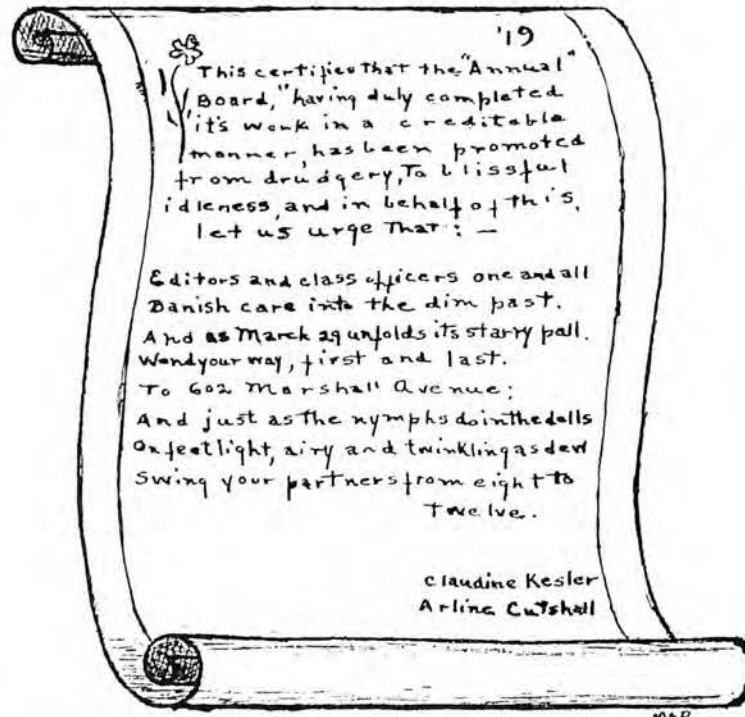 '19
This certifies that the "Annual"
Board," having duly completed
it's work in a creditable
manner, has been promoted
from drudgery, To blissful
idleness, and in behalf of this,
let us urge That: —
Editors and class officers one and all
Banish care into the dim past.
And as March 29 unfolds its starry pall.
Wend your way, first and last.
To 602 Marshall Avenue;
And just as the nymphs do in the dells
On feet light, airy and twinkling as dew
Swing your partners from eight to
Twelve.
Claudine Kesler
Arline Cutshall